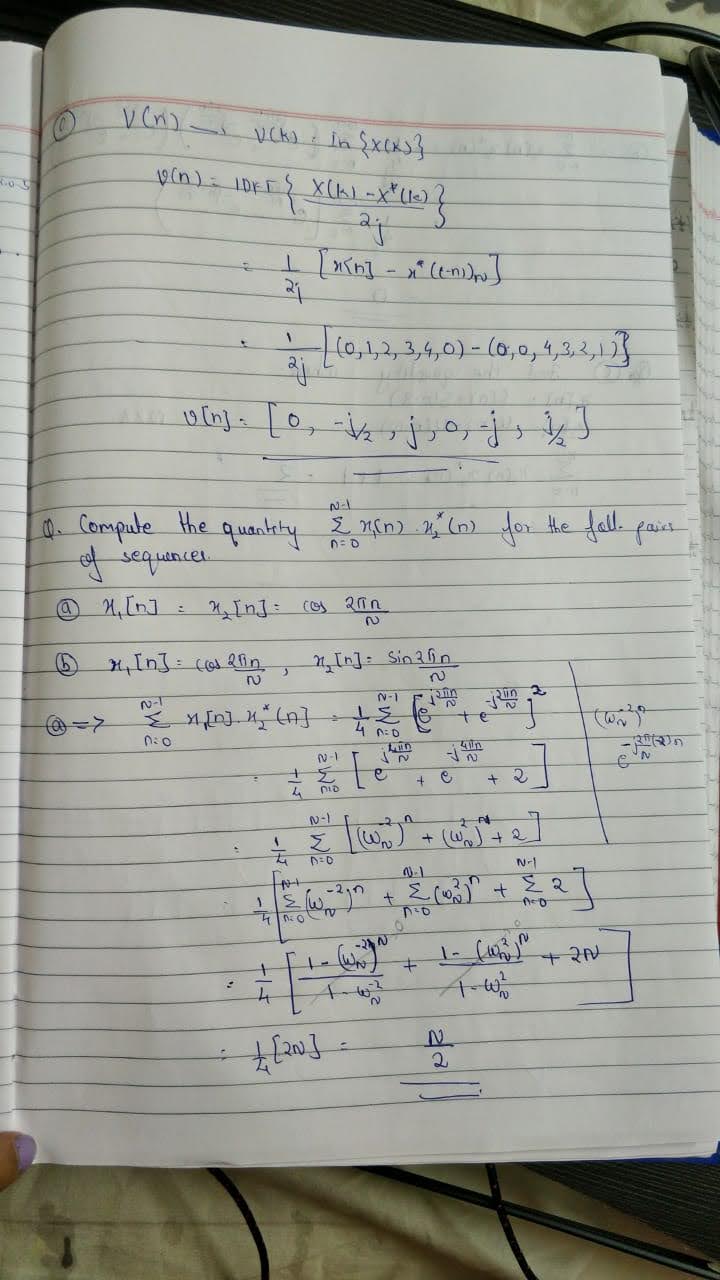 ⓒ V(n) → V(k) = Im {X(k)}
v(n) = IDFT { X(k) - X*(k) / 2j }
= 1/2j [x[n] - x*((-n))N]
= 1/2j [(0,1,2,3,4,0) - (0,0,4,3,2,1)}
v[n] = [0, -j/2, j, 0, -j, j/2]
Q. Compute the quantity N-1 Σ n=0 x₁(n) . x₂*(n) for the foll. pairs
of sequences.
ⓐ x₁[n] = x₂[n] = cos 2πn/N
ⓑ x₁[n] = cos 2πn/N , x₂[n] = sin 2πn/N
ⓐ => N-1 Σ n=0 x₁[n]. x₂*[n] = 1/4 N-1 Σ n=0 [e^(j2πn/N) + e^(-j2πn/N)]²
(ωN^-2)^n
e^(-j2π/N(-2)n)
= 1/4 N-1 Σ n=0 [e^(j4πn/N) + e^(-j4πn/N) + 2]
= 1/4 N-1 Σ n=0 [(ωN^-2)^n + (ωN^2)^n + 2]
= 1/4 [N-1 Σ n=0 (ωN^-2)^n + N-1 Σ n=0 (ωN^2)^n + N-1 Σ n=0 2]
= 1/4 [1-(ωN^-2)^N / 1-ωN^-2 + 1-(ωN^2)^N / 1-ωN^2 + 2N]
= 1/4 [2N] = N/2